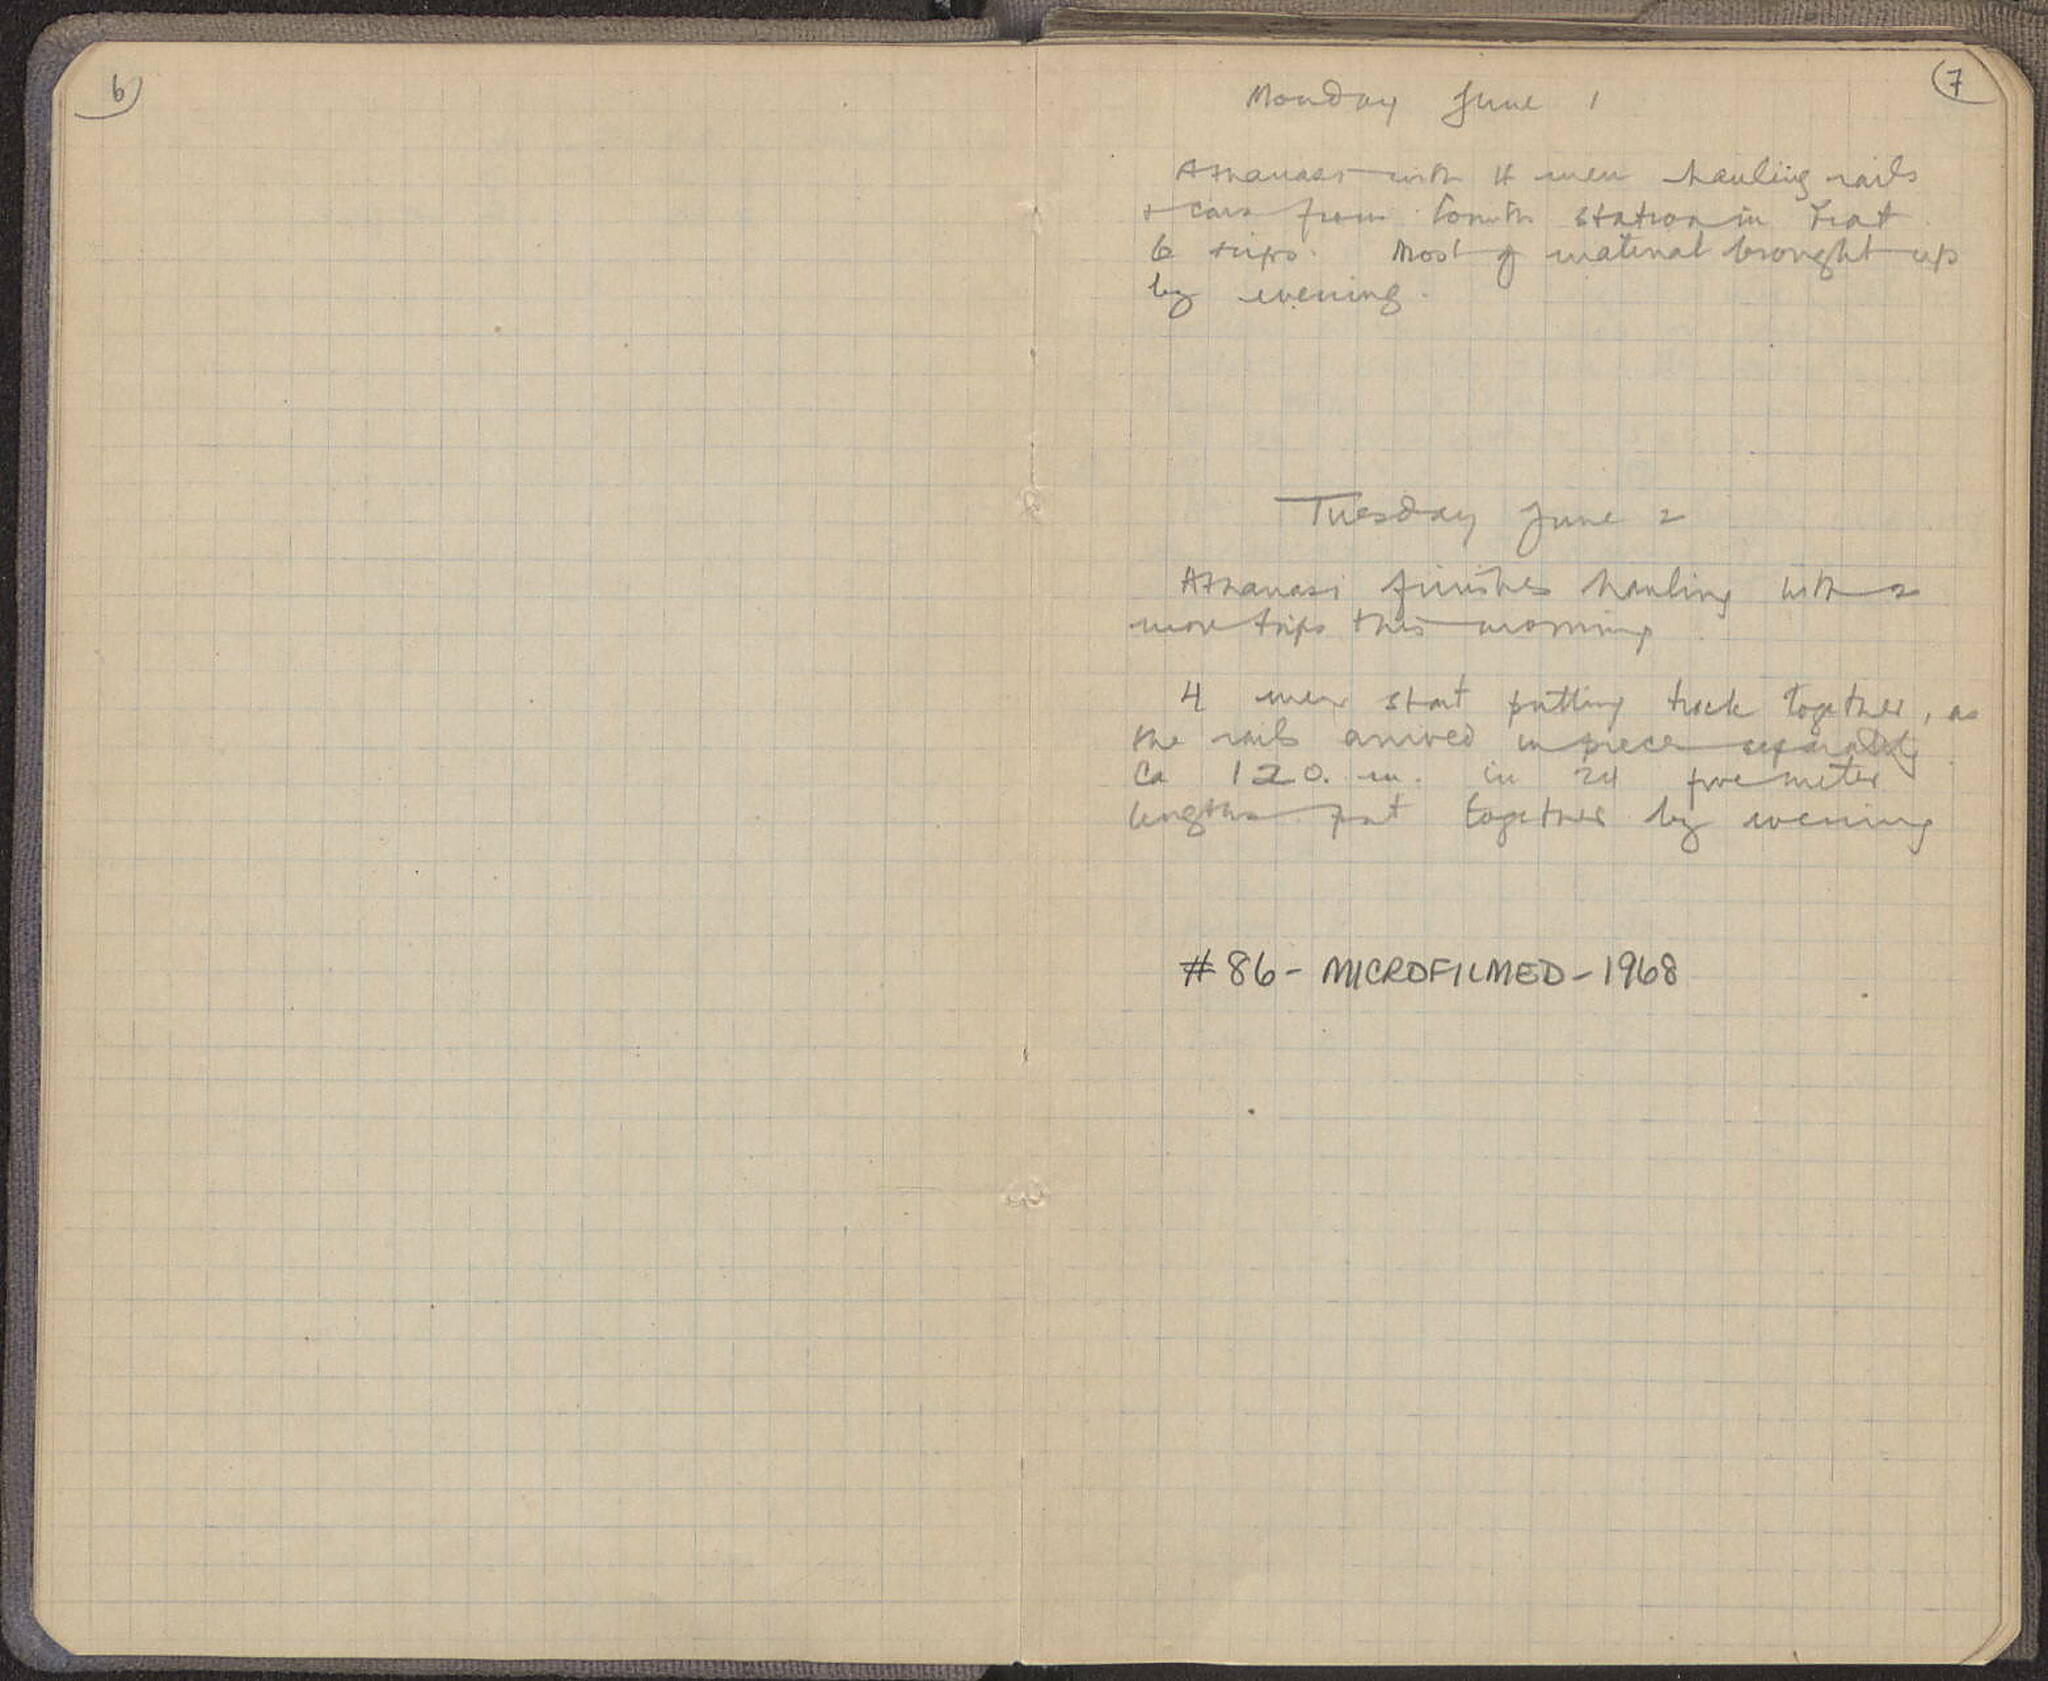 6
7
Monday June 1
Athanasi with 4 men hauling rails
+ cars from Corinth station in Fiat
6 trips. Most of material brought up
by evening.
Tuesday June 2
Athanasi finishes hauling with 2
more trips this morning
4 men start putting track together, as
the rails arrived in pieces separately
Ca 120. m. in 24 five meter
lengths put together by evening
#86- MICROFILMED-1968